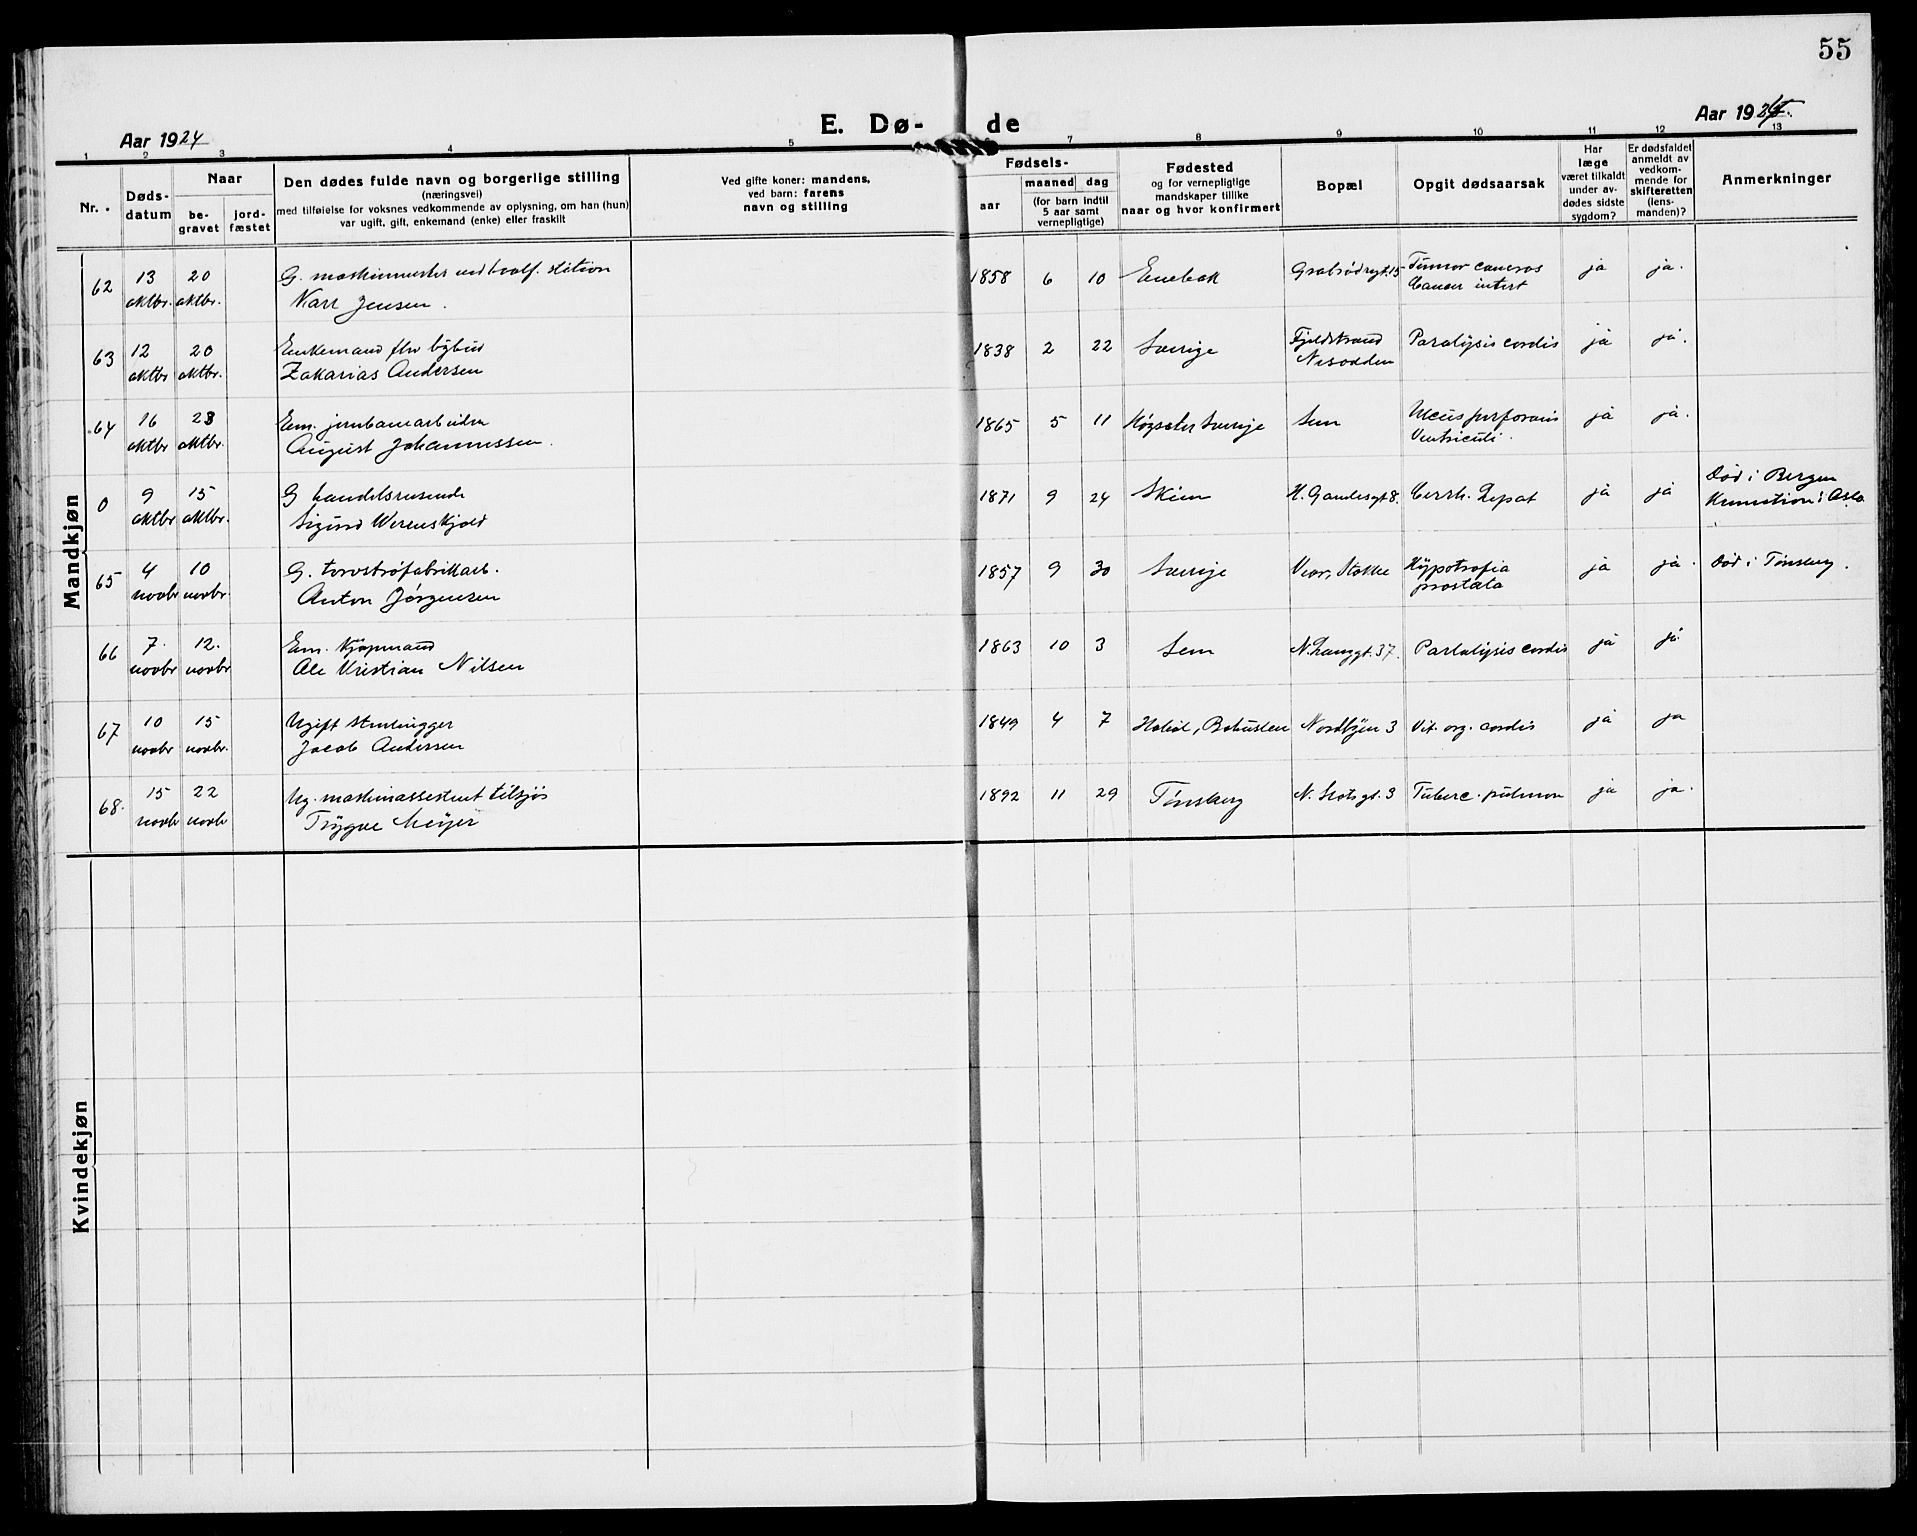 55
Aar 1924
E. Dø-
de
Aar 192
1 2 3 4 5 7 8 9 10 11 12 13
Nr.
Døds-
datum
Naar
be-
gravet
jord-
fæstet
Den dødes fulde navn og borgerlige stilling
(næringsvei)
med tilføielse for voksnes vedkommende av oplysning, om han (hun)
var ugift, gift, enkemand (enke) eller fraskilt
Ved gifte koner: mandens,
ved barn: farens
navn og stilling
Fødsels-
aar
maaned dag
(for barn indtil
5 aar samt
vernepligtige)
Fødested
og for vernepligtige
mandskaper tillike
naar og hvor konfirmert
Bopæl
Opgit dødsaarsak
Har
læge
været tilkaldt
under av-
dødes sidste
sygdom?
Er dødsfaldet
anmeldt av
vedkom-
mende for
skifteretten
(lens-
manden)?
Anmerkninger
Mandkjøn
62 13 20 G. maskinmester ved station 1858 6 10 Enebak Tumor cancros ja ja.
oktbr. oktbr. Karl Jensen. Cancer intest
63 12 20 Enkemand fhv bybud 1838 2 22 Sverige Fjeldstrand Paralysis cordis ja ja.
oktbr oktbr. Zakarias Andersen Nesodden
64 16 23 Em. jernbanearbeider 1865 5 11 Sverige Sem Ulcus perforans ja ja.
oktbr oktbr. August Johannessen. Ventriculi.
0 9 15 G handelsreisende 1871 9 24 Skien 8. Cirrh. hepat ja ja Død i Bergen
oktbr oktbr. Sigurd Werenskjold Kremation i Oslo
65 4 10 G. torvstrøfabrikarb. 1857 9 30 Sverige Vear, Stokke Hypotrofia ja ja. Død i Tønsberg.
novbr novbr. Anton Jørgensen prostata
66 7. 12. Em. Kjøpmand 1863 10 3 Sem N. Langgt. 37. Parlalysis cordis ja ja
novbr novbr Ole Kristian Nilsen
67 10 15 Ugift stenhugger 1849 4 7 Nordbyen 3 Vit. org. cordis ja ja
novbr novbr. Jacob Andersen
68. 15 22 Ug. maskinassistent tilsjøs 1892 11 29 Tønsberg N. Slotsgt. 3 Tuberc. pulmon ja ja.
novbr novbr Trygve Meyer
Kvindekjøn